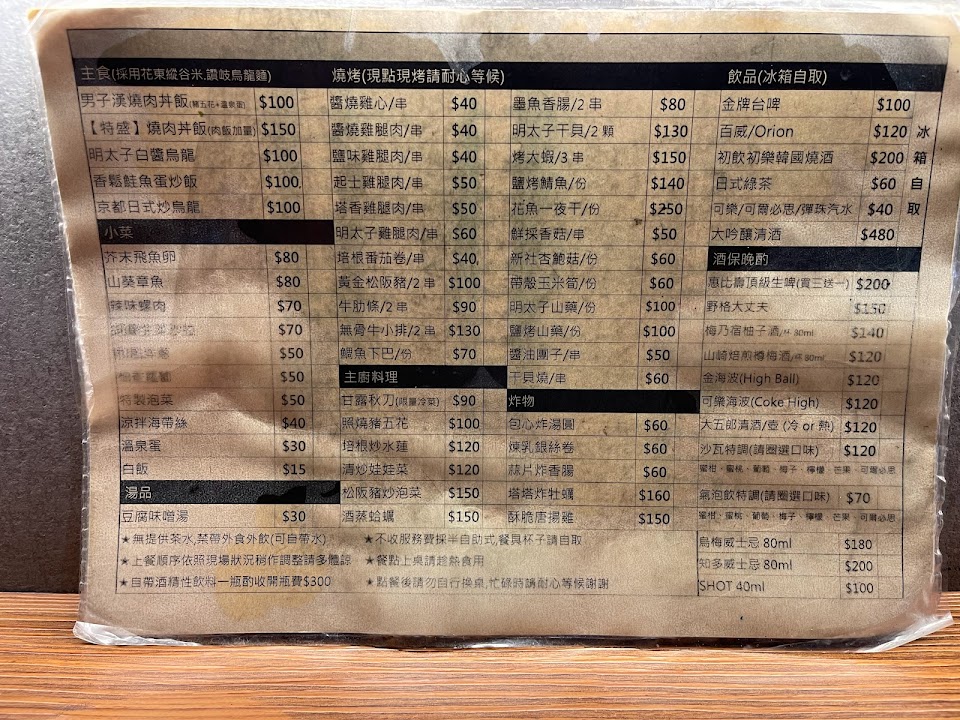 主食(採用花東縱谷米,讚岐烏龍麵)
男子漢燒肉丼飯(豬五花+溫泉蛋) $100
【特盛】燒肉丼飯(肉飯加量) $150
明太子白醬烏龍 $100
香鬆鮭魚蛋炒飯 $100
京都日式炒烏龍 $100
小菜
芥末飛魚卵 $80
山葵章魚 $80
辣味螺肉 $70
$70
$50
$50
特製泡菜 $50
涼拌海帶絲 $40
溫泉蛋 $30
白飯 $15
湯品
豆腐味噌湯 $30
燒烤(現點現烤請耐心等候)
醬燒雞心/串 $40
醬燒雞腿肉/串 $40
鹽味雞腿肉/串 $40
起士雞腿肉/串 $50
塔香雞腿肉/串 $50
明太子雞腿肉/串 $60
培根番茄卷/串 $40
黃金松阪豬/2串 $100
牛肋條/2串 $90
無骨牛小排/2串 $130
鰕魚下巴/份 $70
主廚料理
甘露秋刀(限量冷菜) $90
照燒豬五花 $100
培根炒水蓮 $120
清炒娃娃菜 $120
松阪豬炒泡菜 $150
酒蒸蛤蠣 $150
墨魚香腸/2串 $80
明太子干貝/2顆 $130
烤大蝦/3串 $150
鹽烤鯖魚/份 $140
花魚一夜干/份 $250
鮮採香菇/串 $50
新社杏鮑菇/份 $60
帶殼玉米筍/份 $60
明太子山藥/份 $100
鹽烤山藥/份 $100
醬油團子/串 $50
干貝燒/串 $60
炸物
包心炸湯圓 $60
煉乳銀絲卷 $60
蒜片炸香腸 $60
塔塔炸牡蠣 $160
酥脆唐揚雞 $150
飲品(冰箱自取)
金牌台啤 $100
百威/Orion $120
初飲初樂韓國燒酒 $200
日式綠茶 $60
可樂/可爾必思/彈珠汽水 $40
大吟釀清酒 $480
冰箱自取
酒保晚酌
惠比壽頂級生啤(買三送一) $200
野格大丈夫 $150
梅乃宿柚子酒/杯 80ml $140
山崎焙煎樽梅酒/杯 80ml $120
金海波(High Ball) $120
可樂海波(Coke High) $120
大五郎清酒/壺 (冷 or 熱) $120
沙瓦特調(請圈選口味) $120
蜜柑、蜜桃、葡萄、梅子、檸檬、芒果、可爾必思
氣泡飲特調(請圈選口味) $70
蜜柑、蜜桃、葡萄、梅子、檸檬、芒果、可爾必思
烏梅威士忌 80ml $180
知多威士忌 80ml $200
SHOT 40ml $100
★無提供茶水,禁帶外食外飲(可自帶水)
★上餐順序依照現場狀況稍作調整請多體諒
★自帶酒精性飲料一瓶酌收開瓶費$300
★不收服務費採半自助式,餐具杯子請自取
★餐點上桌請趁熱食用
★點餐後請勿自行換桌,忙碌時請耐心等候謝謝